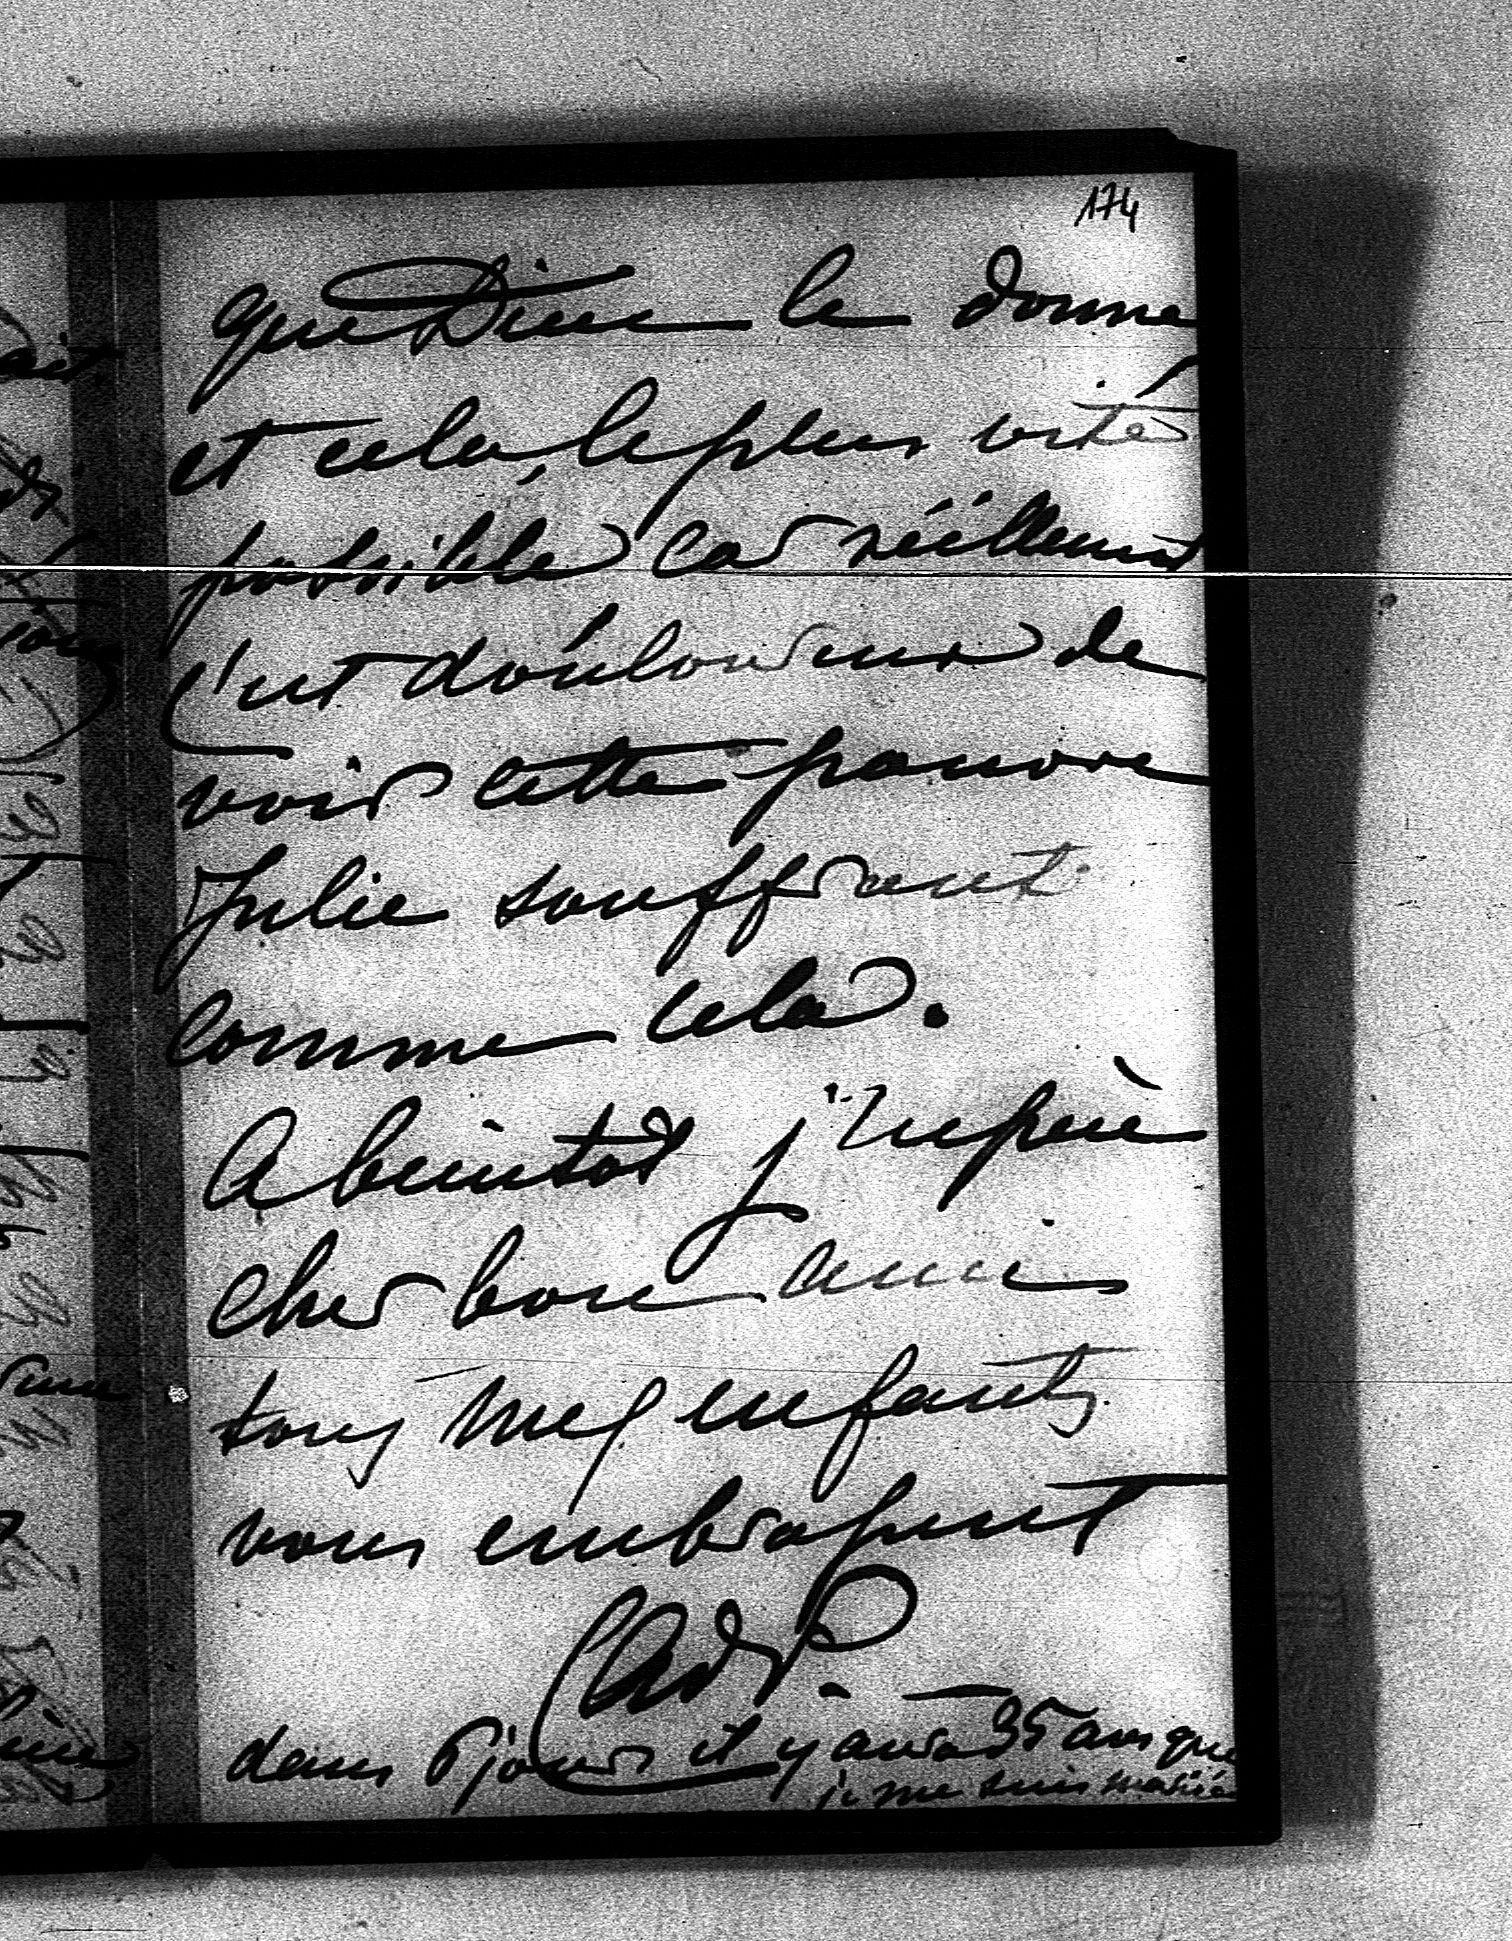 174
que Dieu le donne
et cela, le plus vite
possible car réellement
c'est douloureux de
voir cette pauvre
Julie souffrant
comme cela.
A bientot j'espère
cher bon ami
tous mes enfants
vous embrassent
dans 8 jours il y aura 35 ans que
je me suis mariée